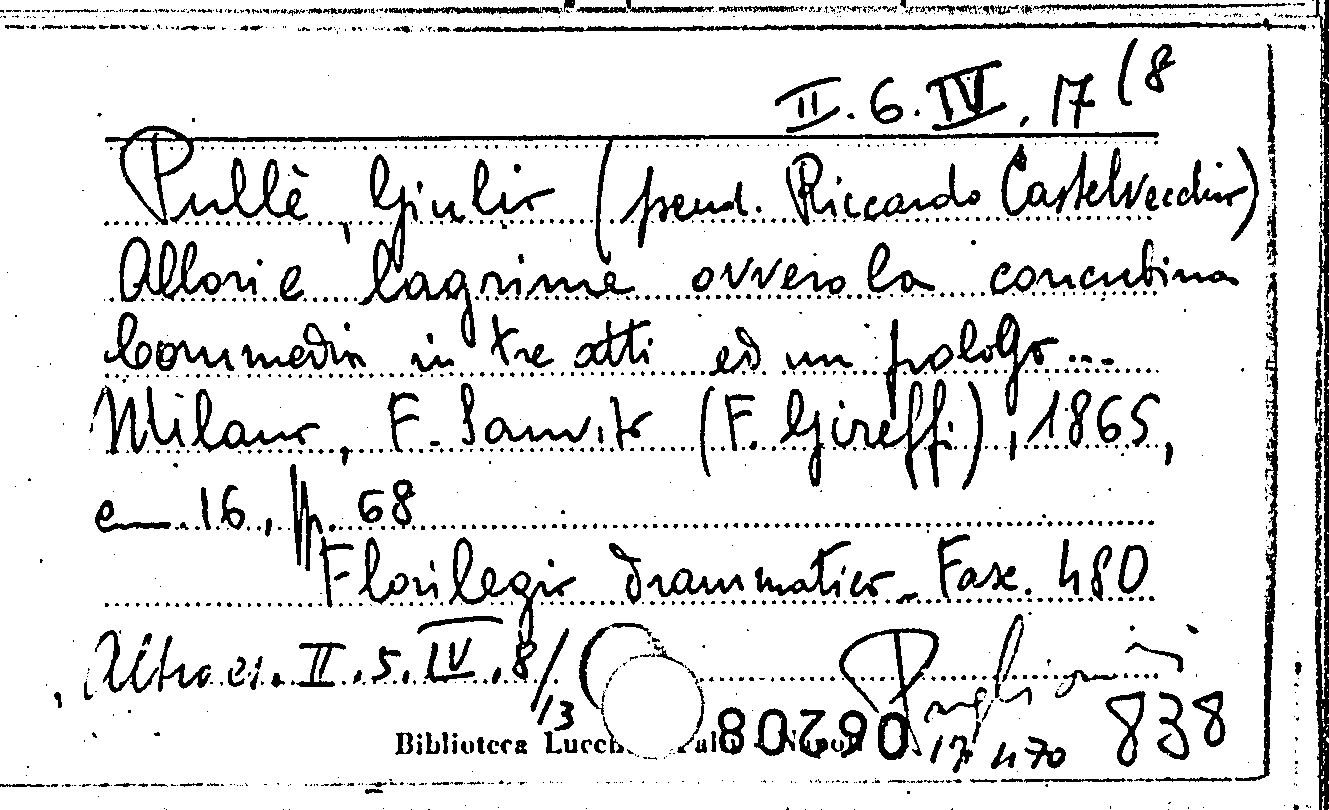 II.6.IV.17(8
Pullè, Giulio (pseud. Riccardo Castelvecchio)
Allori e lagrime ovvero la concubina
Commedia in tre atti ed un prologo...
Milano, F. Sanvito (F. Gireffi), 1865,
em 16, pp. 68
Florilegio drammatico - Fasc. 480
Altro es. II.5.IV.8/13
Biblioteca Lucch Palli - Napoli
80290
17 470 838